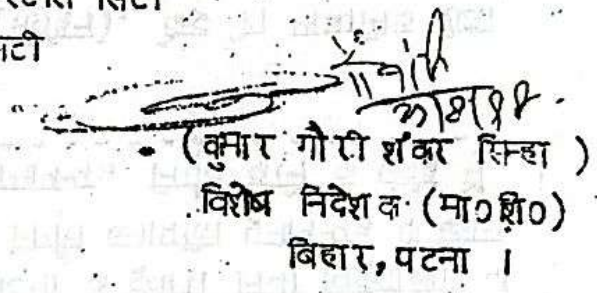 सिटी
(कुमार गौरी शंकर सिन्हा )
विशेष निदेशक (मा0शि0)
बिहार, पटना ।